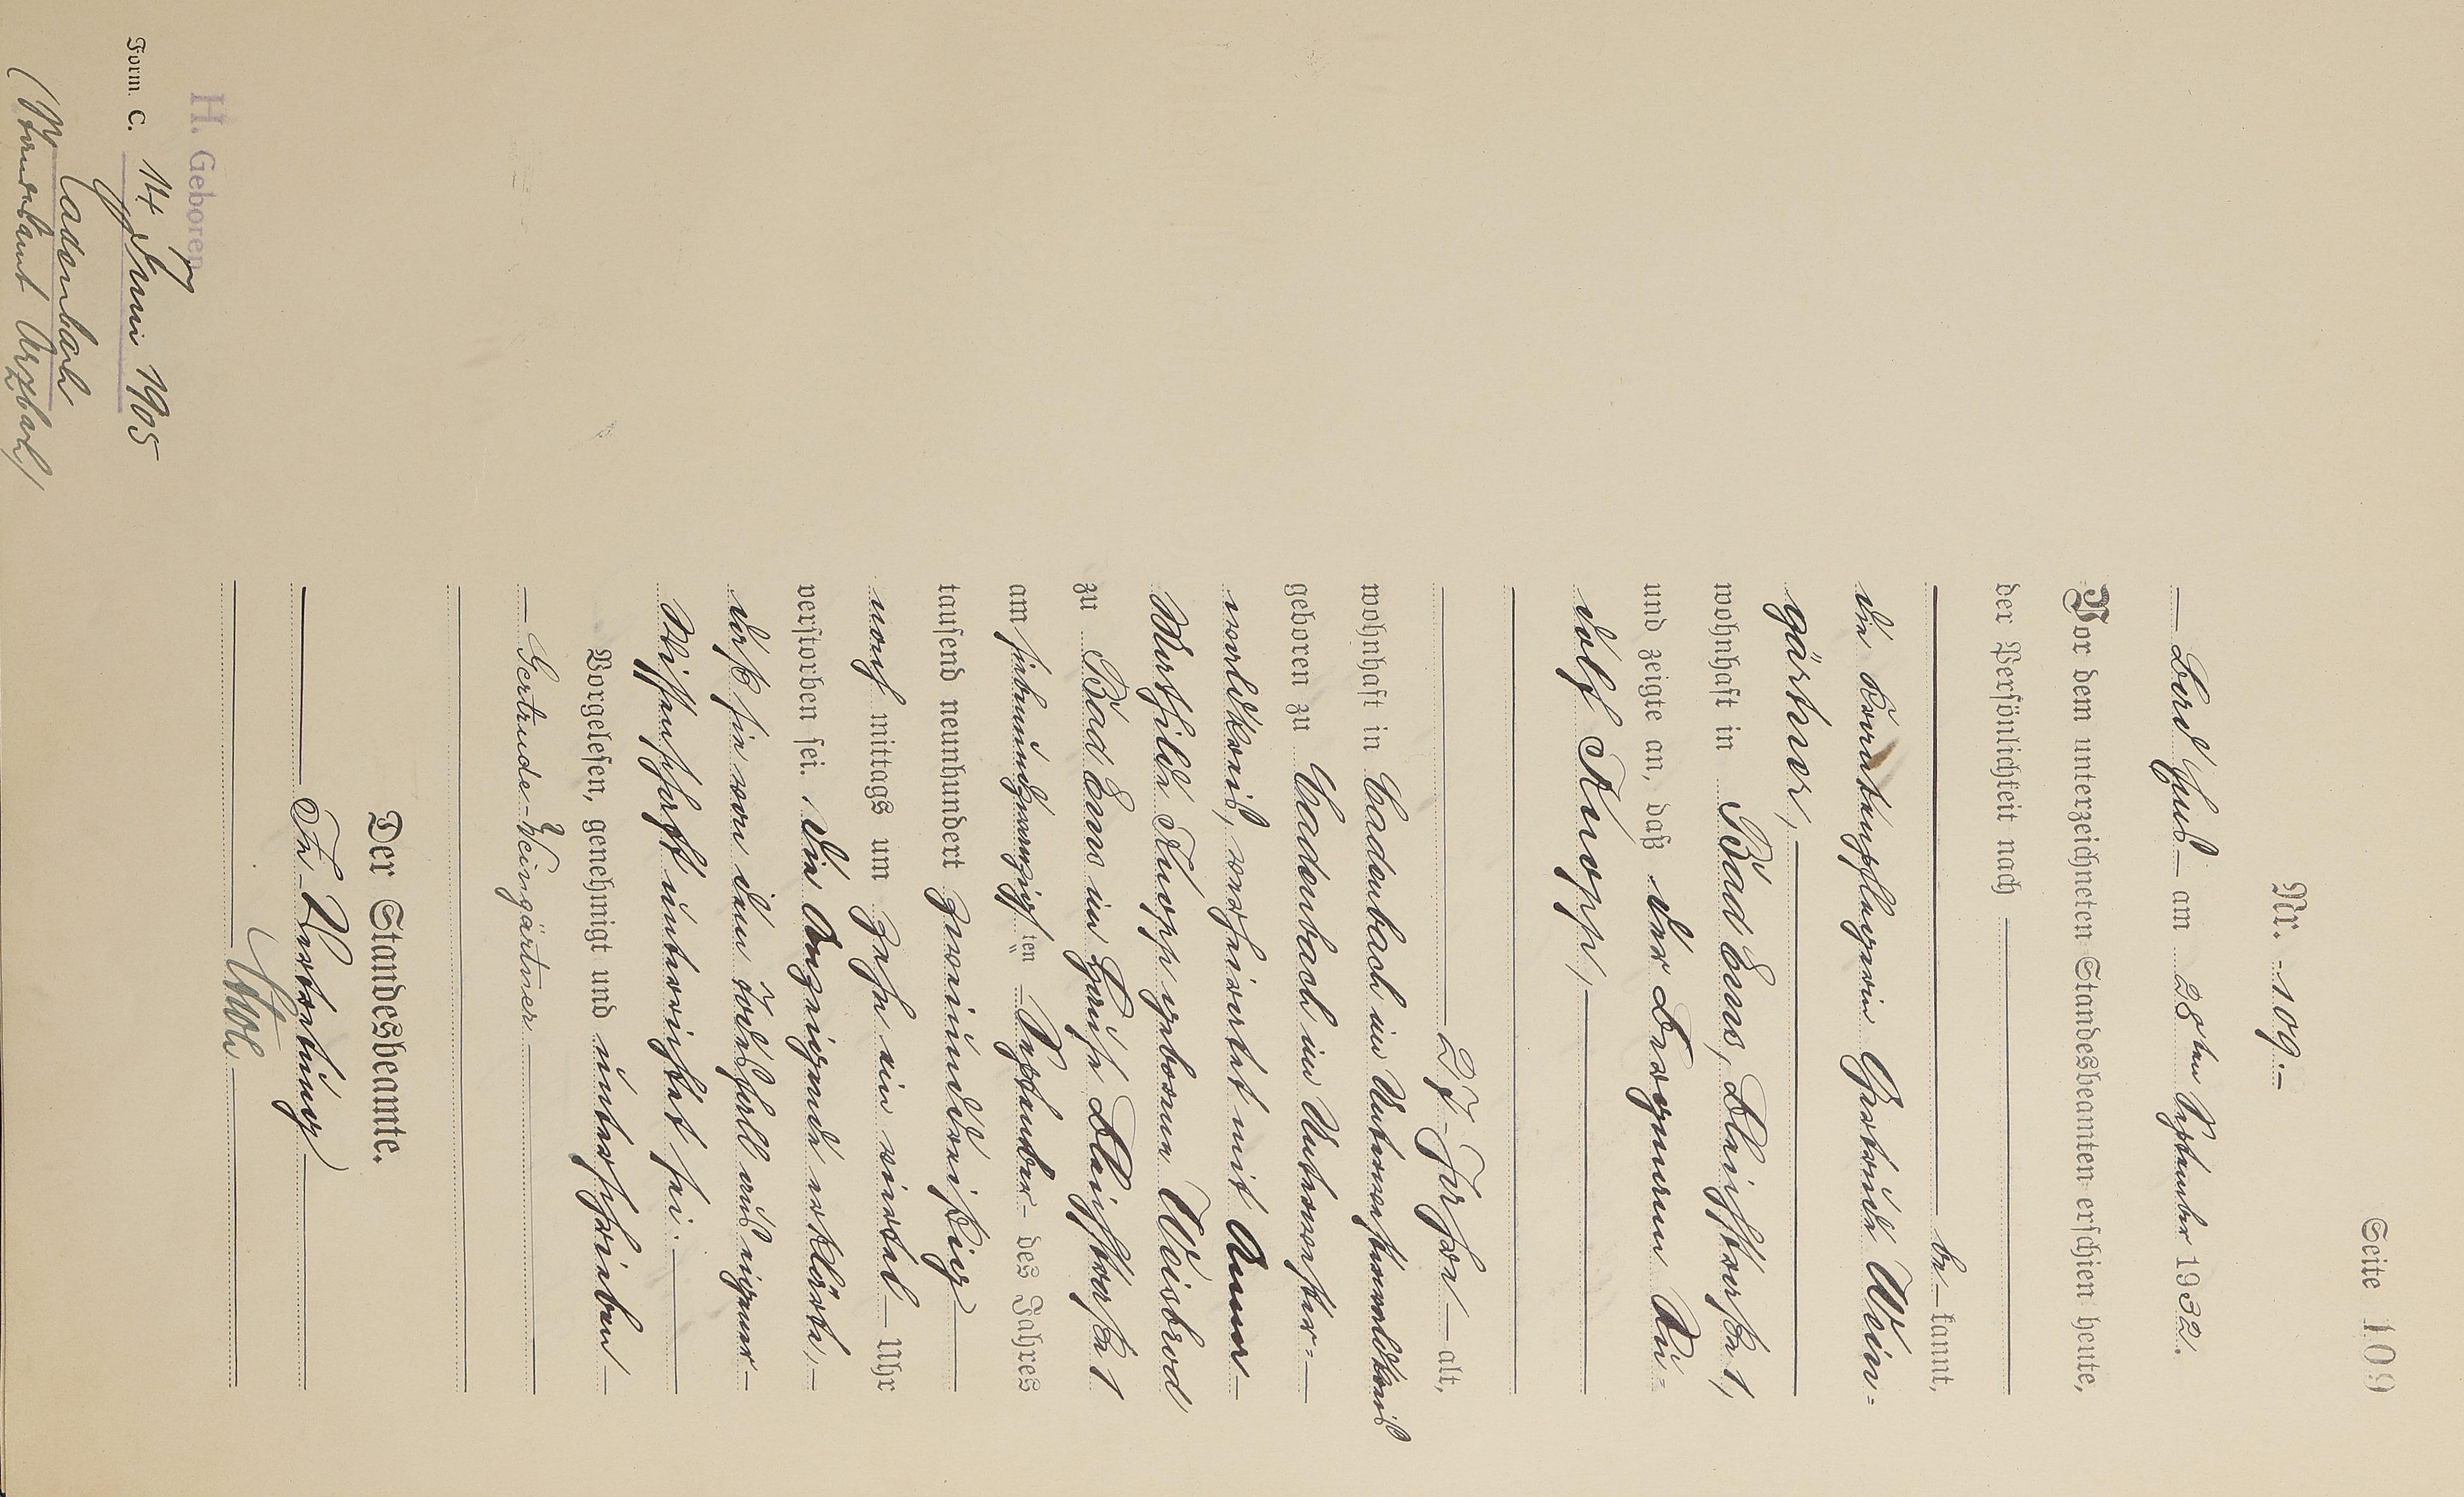 Seite 109
Nr. 109.
Bad Ems am 28ten September 1932.
Vor dem unterzeichneten Standesbeamten erschien heute,
der Persönlichkeit nach
be kannt,
die Krankenpflegerin Gertrude Wein-
gärtner,
wohnhaft in Bad Ems, Bleichstraße 1,
und zeigte an, daß der Bergmann Au-
dolf Knopp,
27 Jahre alt,
wohnhaft in Cadenbach im Unterwesterwaldkreis
geboren zu Cadenbach im Unterwester-
waldkreis, verheiratet mit Anna
Mathilde Knopp geborene Weisbrod
zu Bad Ems im Hause Bleichstraße 1
am siebenundzwanzigsten September des Jahres
tausend neunhundert zweiunddreißig
nach mittags um zehn ein viertel Uhr
verstorben sei. Die Anzeigende erklärte,
daß sie von dem Todesfall aus eigener
Wissenschaft unterrichtet sei.
Vorgelesen, genehmigt und unterschrieben
Gertrude Weingärtner
Der Standesbeamte.
In Vertretung
H. Geboren
Form. C.
14 Juni 1905
Cadenbach
(Standesamt Arzbach)